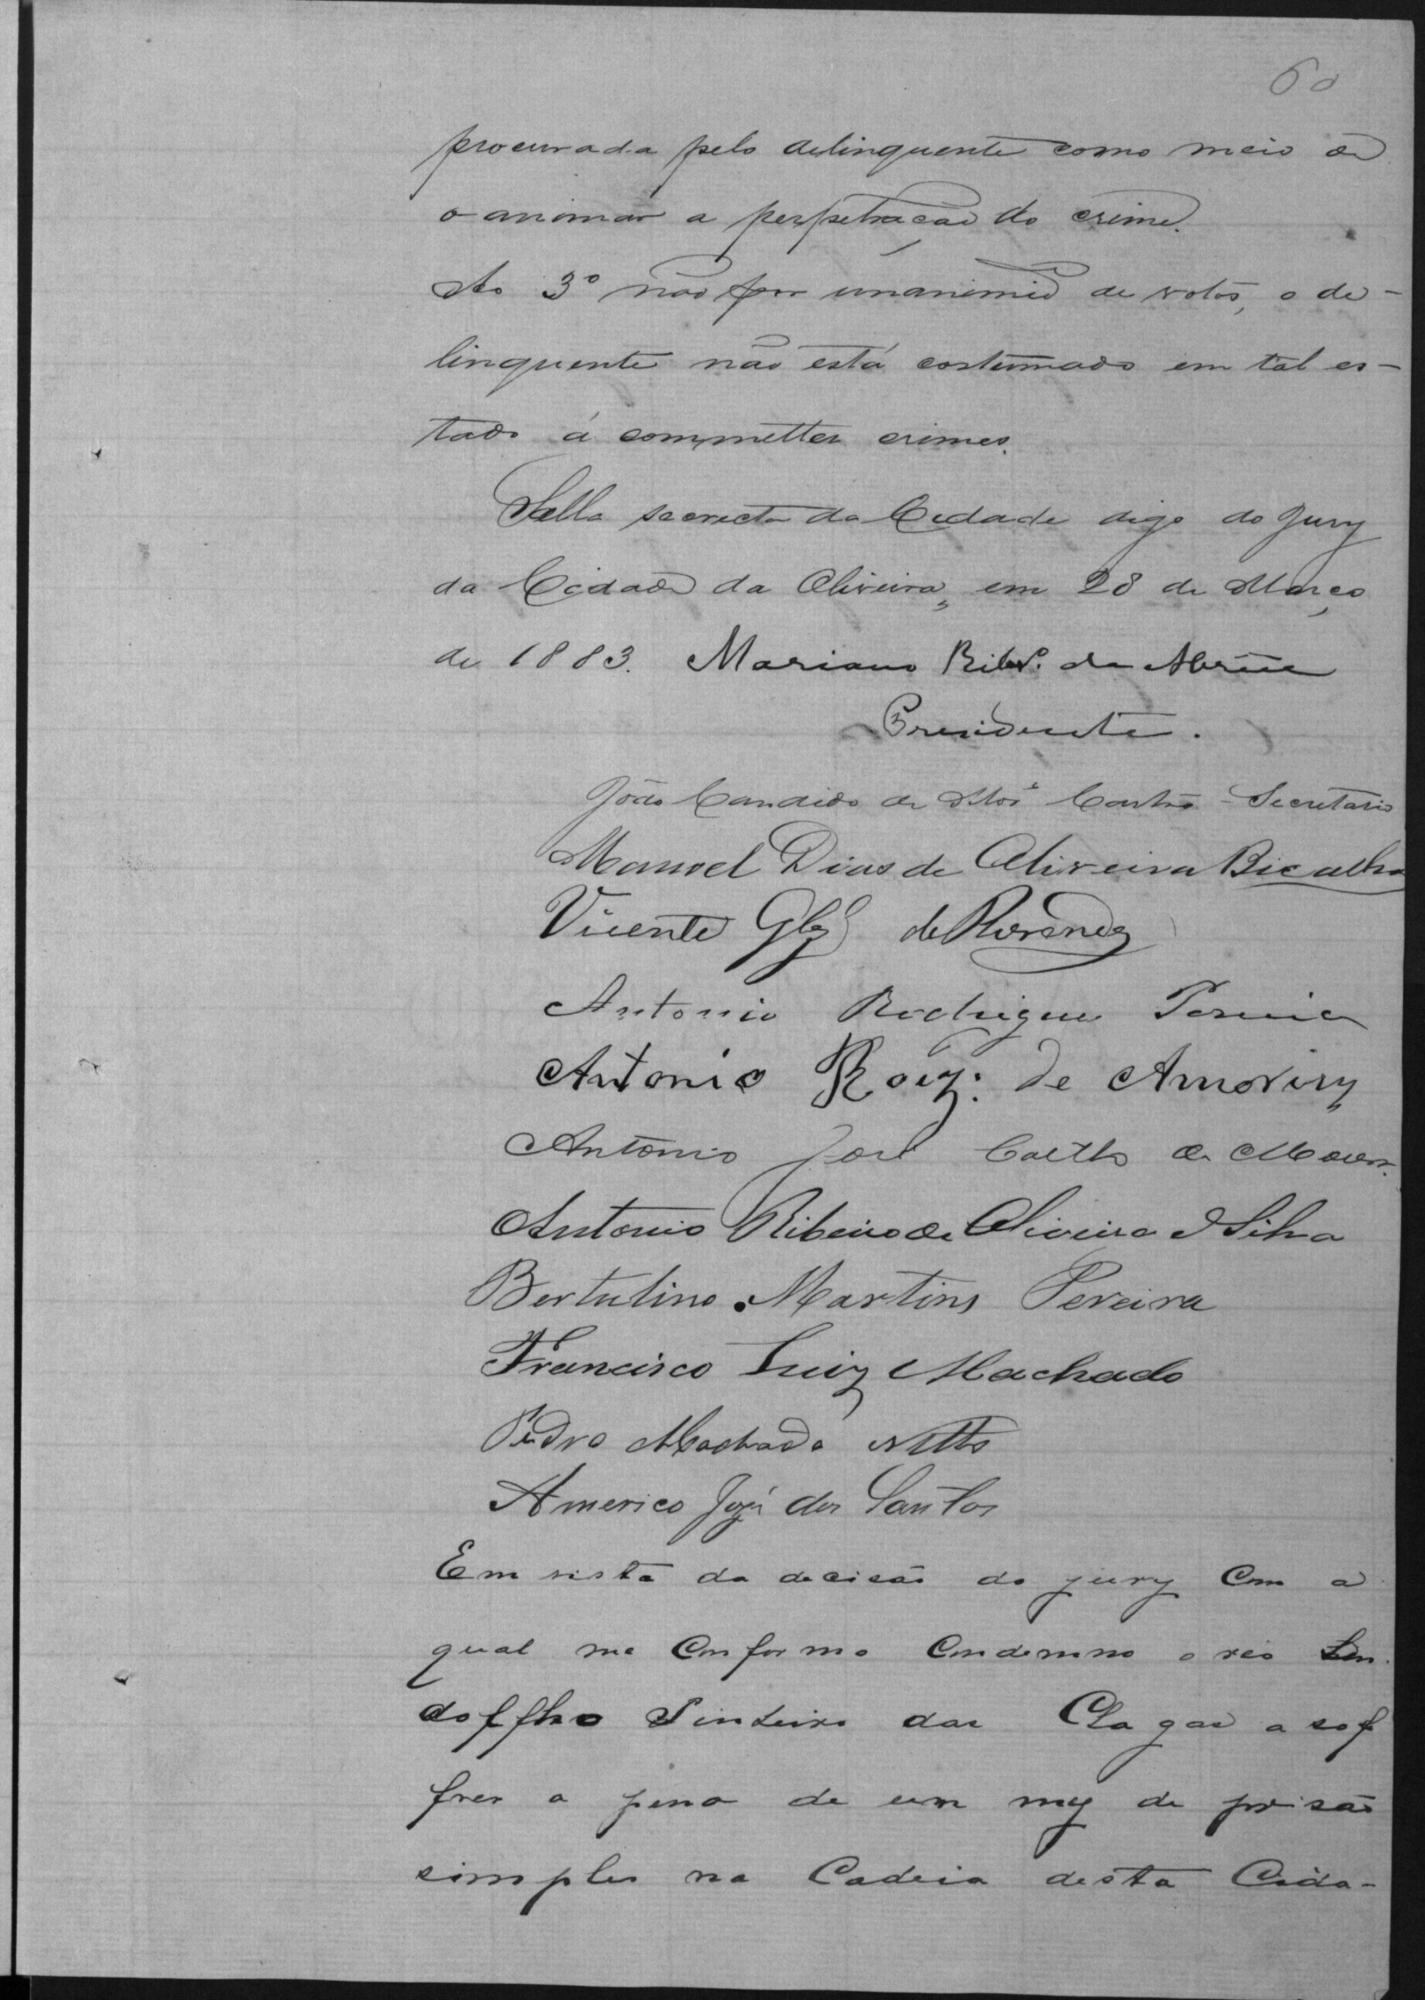 60
procurada pelo delinquente como meio de
o animar a perpetração do crime.
Ao 3º não por unanimid de votos, o de-
linquente não está costumado em tal es-
tado á commetter crimes.
Salla secreta da Cidade digo do Jury
da Cidade da Oliveira, em 28 de Março
de 1883. Mariano Ribrº. de Abreu
Presidente.
João Candido de Castro - Secretario
Manoel Dias de Oliveira Bicalho
Vicente Glz de Rezende
Antonio Rodrigues Pereira
Antonio Roiz: de Amorim
Antonio José Coelho de Moura
Antonio Ribeiro de Oliveira e Silva
Bertulino Martins Pereira
Francisco Luiz Machado
Pedro Machado Netto
Americo José dos Santos
Em vista da decisão do jury com a
qual me conformo condemno o réo
das Chagas a sof
frer a pena de um mez de prisão
simples na Cadeia desta Cida-